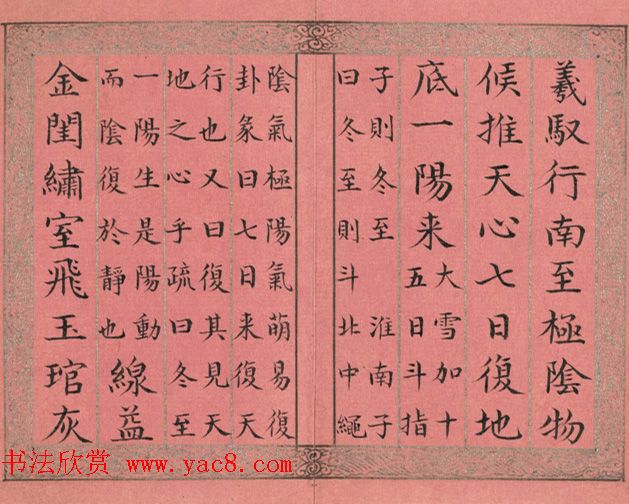 羲馭行南至極陰物
候推天心七日復地
底一陽来
大雪加十
五日斗指
子則冬至淮南子
曰冬至則斗北中繩
陰氣極陽氣萌易復
卦彖曰七日来復天
行也又曰復其見天
地之心乎疏曰冬至
一陽生是陽動
而陰復於靜也
線益
金閨繡室飛玉琯灰
书法欣赏 www.yac8.com